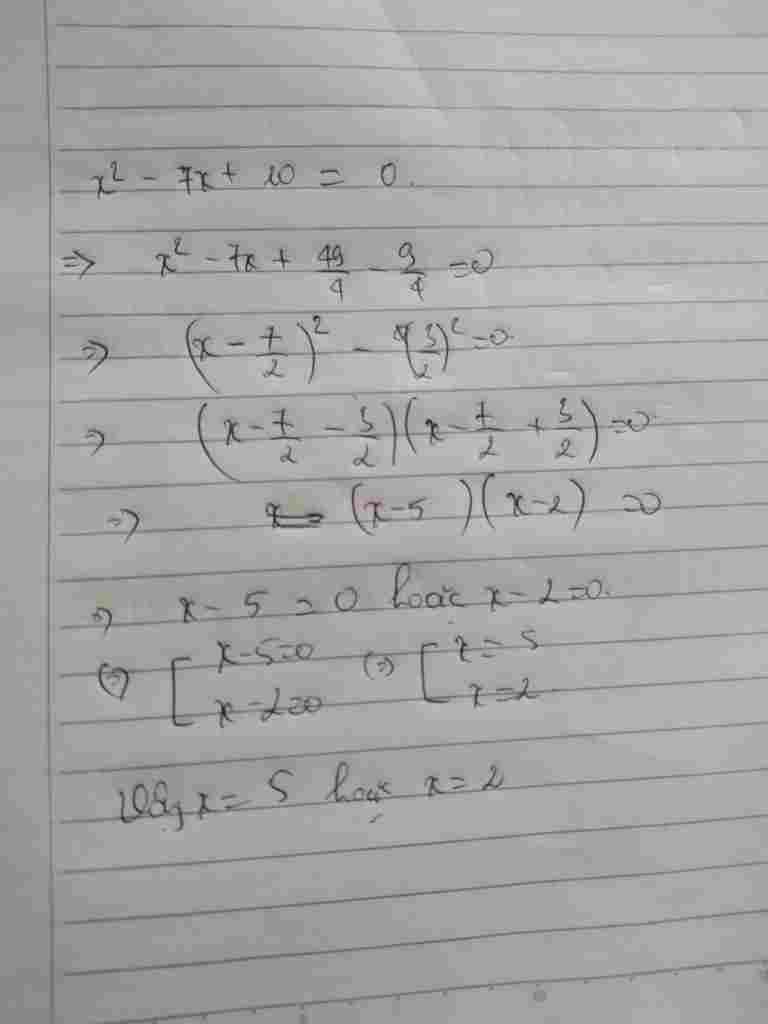 x² - 7x + 10 = 0.
=> x² - 7x + 49/4 - 9/4 = 0
=> (x - 7/2)² - (3/2)² = 0.
=> (x - 7/2 - 3/2)(x - 7/2 + 3/2) = 0.
=> (x - 5)(x - 2) = 0
=> x - 5 = 0 hoặc x - 2 = 0.
(=>) [ x - 5 = 0 (=>) [ x = 5
x - 2 = 0 x = 2.
Vậy x = 5 hoặc x = 2